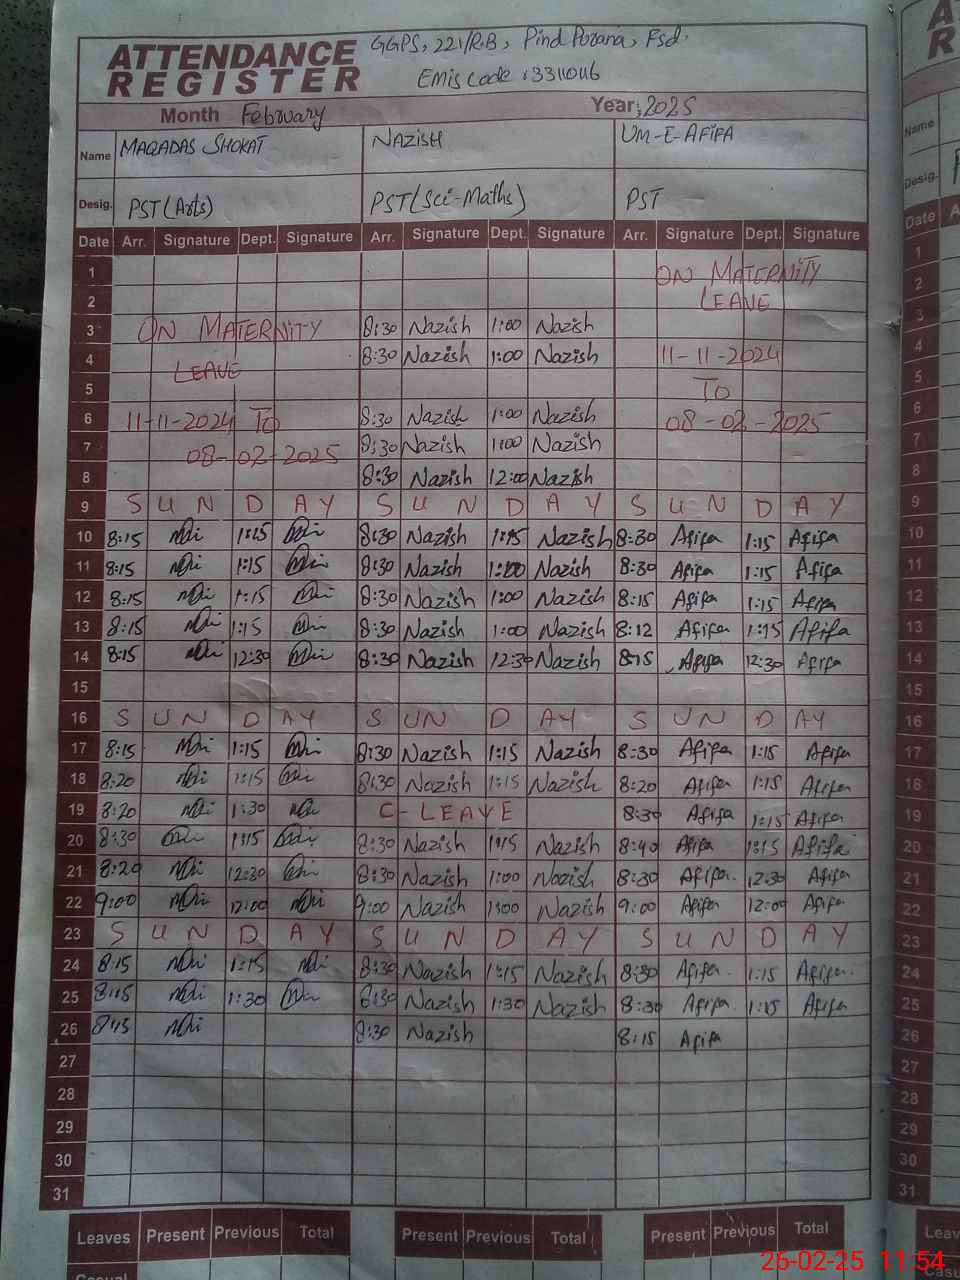 ATTENDANCE REGISTER GGPS, 221/R.B, Pind Purana, Fsd.
Emis Code : 33110116
Month February Year: 2025
Name MAQADAS SHOKAT NAZISH UM-E-AFIFA
Desig. PST (Arts) PST (Sci-Maths) PST
Date Arr. Signature Dept. Signature Arr. Signature Dept. Signature Arr. Signature Dept. Signature
1 ON MATERNITY
2 LEAVE
3 ON MATERNITY 8:30 Nazish 1:00 Nazish
4 LEAVE 8:30 Nazish 1:00 Nazish 11-11-2024
5 TO
6 11-11-2024 TO 8:30 Nazish 1:00 Nazish 08-02-2025
7 08-02-2025 8:30 Nazish 1:00 Nazish
8 8:30 Nazish 12:00 Nazish
9 SUNDAY SUNDAY SUNDAY
10 8:15 1:15 8:30 Nazish 1:15 Nazish 8:30 Afifa 1:15 Afifa
11 8:15 1:15 8:30 Nazish 1:00 Nazish 8:30 Afifa 1:15 Afifa
12 8:15 1:15 8:30 Nazish 1:00 Nazish 8:15 Afifa 1:15 Afifa
13 8:15 1:15 8:30 Nazish 1:00 Nazish 8:12 Afifa 1:15 Afifa
14 8:15 12:30 8:30 Nazish 12:30 Nazish 8:15 Afifa 12:30 Afifa
15
16 SUNDAY SUNDAY SUNDAY
17 8:15 1:15 8:30 Nazish 1:15 Nazish 8:30 Afifa 1:15 Afifa
18 8:20 1:15 8:30 Nazish 1:15 Nazish 8:20 Afifa 1:15 Afifa
19 8:20 1:30 C-LEAVE 8:30 Afifa 1:15 Afifa
20 8:30 1:15 8:30 Nazish 1:15 Nazish 8:40 Afifa 1:15 Afifa
21 8:20 12:30 8:30 Nazish 1:00 Nazish 8:30 Afifa. 12:30 Afifa
22 9:00 12:00 9:00 Nazish 1:00 Nazish 9:00 Afifa 12:00 Afifa
23 SUNDAY SUNDAY SUNDAY
24 8:15 1:15 8:30 Nazish 1:15 Nazish 8:30 Afifa. 1:15 Afifa.
25 8:15 1:30 8:30 Nazish 1:30 Nazish 8:30 Afifa. 1:15 Afifa
26 8:15 8:30 Nazish 8:15 Afifa
27
28
29
30
31
Leaves Present Previous Total Present Previous Total Present Previous Total
Casual
26-02-25 11:54